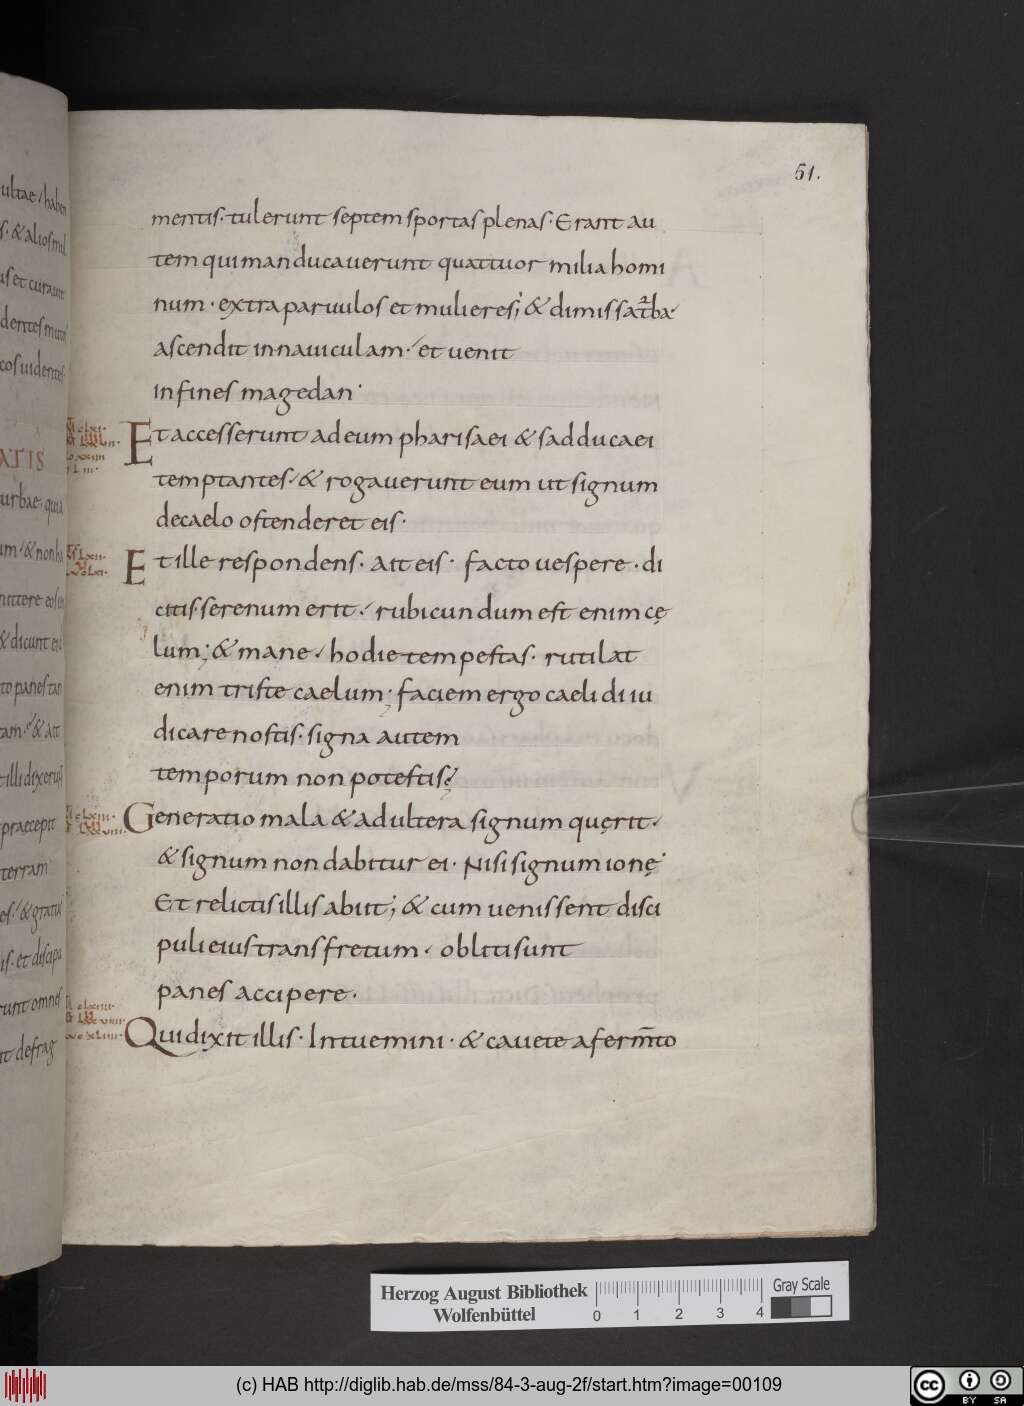 51.
mentis· tulerunt septem sportas plenas· Erant au
tem qui manducauerunt quattuor milia homi
num· extra paruulos et mulieres; & dimissa t̄ba
ascendit in nauiculam· et uenit
in fines magedan·
Et accesserunt ad eum pharisaei & sadducaei
temptantes· & rogauerunt eum ut signum
de caelo ostenderet eis·
Et ille respondens· ait eis· facto uespere· di
citis serenum erit· rubicundum est enim cę
lum; & mane· hodie tempestas· rutilat
enim triste caelum; faciem ergo caeli diiu
dicare nostis· signa autem
temporum non potestis?
Generatio mala & adultera signum quęrit·
& signum non dabitur ei· Nisi signum ionę·
Et relictis illis abiit; & cum uenissent disci
puli eius trans fretum· obliti sunt
panes accipere·
Qui dixit illis· Intuemini· & cauete a ferm̄to
Herzog August Bibliothek
Wolfenbüttel
0 1 2 3 4
Gray Scale
(c) HAB http://diglib.hab.de/mss/84-3-aug-2f/start.htm?image=00109
cc BY SA